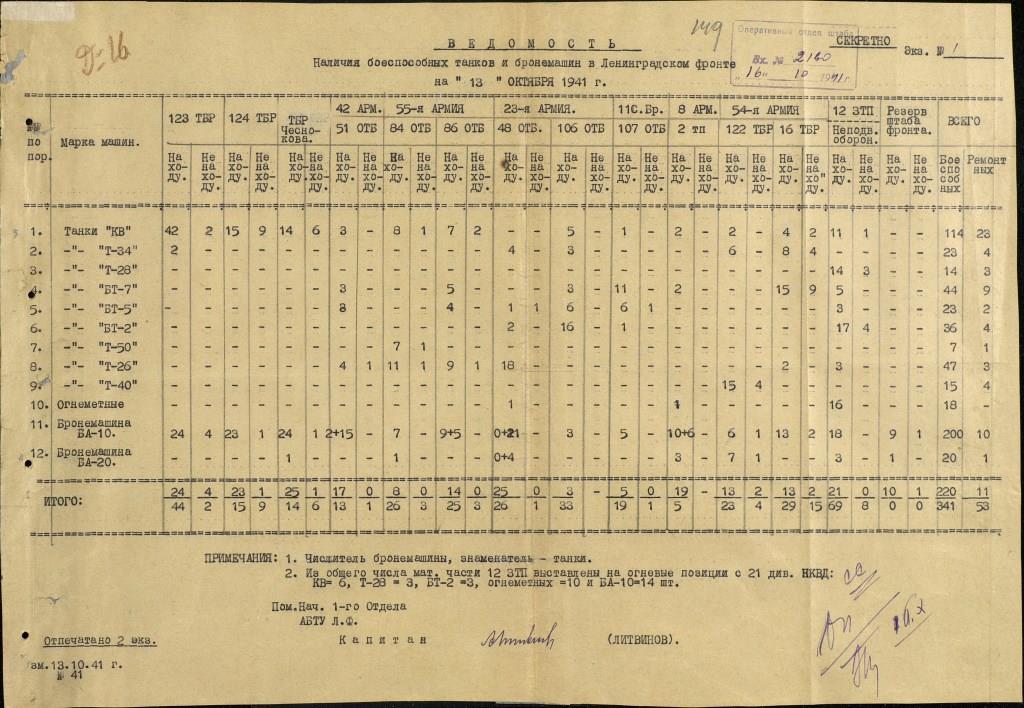 9-16
149
Оперативный отдел штаба
СЕКРЕТНО
Вх. № 2160
Экз. № 1
"16" 10 1941 г.
ВЕДОМОСТЬ
Наличия боеспособных танков и бронемашин в Ленинградском фронте
на " 13 " ОКТЯБРЯ 1941 г.
№№ по пор. Марка машин. 123 ТБР 124 ТБР ТБР Чесно-кова. 42 АРМ. 55-я АРМИЯ 23-я АРМИЯ. 11С.Бр. 8 АРМ. 54-я АРМИЯ 12 ЗТП Резерв штаба фронта. ВСЕГО
51 ОТБ 84 ОТБ 86 ОТБ 48 ОТБ. 106 ОТБ 107 ОТБ 2 тп 122 ТБР 16 ТБР Неподв. оборон.
На хо-ду. Не на хо-ду. На хо-ду. Не на хо-ду. На хо-ду. Не на хо-ду. На хо-ду. Не на хо-ду. На хо-ду. Не на хо-ду. На хо-ду. Не на хо-ду. На хо-ду. Не на хо-ду. На хо-ду. Не на хо-ду. На хо-ду. Не на хо-ду. На хо-ду. Не на хо-ду. На хо-ду. Не на хо-ду. На хо-ду. Не на хо" ду. На хо-ду. Не на хо-ду. На хо-ду. Не на хо-ду. Бое спо соб ных Ремонт ных
1. Танки "КВ" 42 2 15 9 14 6 3 - 8 1 7 2 - - 5 - 1 - 2 - 2 - 4 2 11 1 - - 114 23
2. -"- "Т-34" 2 - - - - - - - - - - - 4 - 3 - - - - - 6 - 8 4 - - - - 23 4
3. -"- "Т-28" - - - - - - - - - - - - - - - - - - - - - - - - 14 3 - - 14 3
4. -"- "БТ-7" - - - - - - 3 - - - 5 - - - 3 - 11 - 2 - - - 15 9 5 - - - 44 9
5. -"- "БТ-5" - - - - - - 3 - - - 4 - 1 1 6 - 6 1 - - - - - - 3 - - - 23 2
6. -"- "БТ-2" - - - - - - - - - - - - 2 - 16 - 1 - - - - - - - 17 4 - - 36 4
7. -"- "Т-50" - - - - - - - - 7 1 - - - - - - - - - - - - - - - - - - 7 1
8. -"- "Т-26" - - - - - - 4 1 11 1 9 1 18 - - - - - - - - - 2 - 3 - - - 47 3
9. -"- "Т-40" - - - - - - - - - - - - - - - - - - - - 15 4 - - - - - - 15 4
10. Огнеметные - - - - - - - - - - - - 1 - - - - - 1 - - - - - 16 - - - 18 -
11. Бронемашина
БА-10. 24 4 23 1 24 1 2+15 - 7 - 9+5 - 0+21 - 3 - 5 - 10+6 - 6 1 13 2 18 - 9 1 200 10
12. Бронемашина
БА-20. - - - - 1 - - - 1 - - - 0+4 - - - - - 3 - 7 1 - - 3 - 1 - 20 1
ИТОГО: 24 4 23 1 25 1 17 0 8 0 14 0 25 0 3 - 5 0 19 - 13 2 13 2 21 0 10 1 220 11
44 2 15 9 14 6 13 1 26 3 25 3 26 1 33 19 1 5 23 4 29 15 69 8 0 0 341 53
ПРИМЕЧАНИЯ: 1. Числитель бронемашины, знаменатель - танки.
2. Из общего числа мат. части 12 ЗТП выставлены на огневые позиции с 21 див. НКВД:
КВ= 6, Т-28 = 3, БТ-2 =3, огнеметных =10 и БА-10=14 шт.
Пом.Нач. 1-го Отдела
АБТУ Л.Ф.
Капитан (ЛИТВИНОВ).
16.X
Отпечатано 2 экз.
зм.13.10.41 г.
№ 41